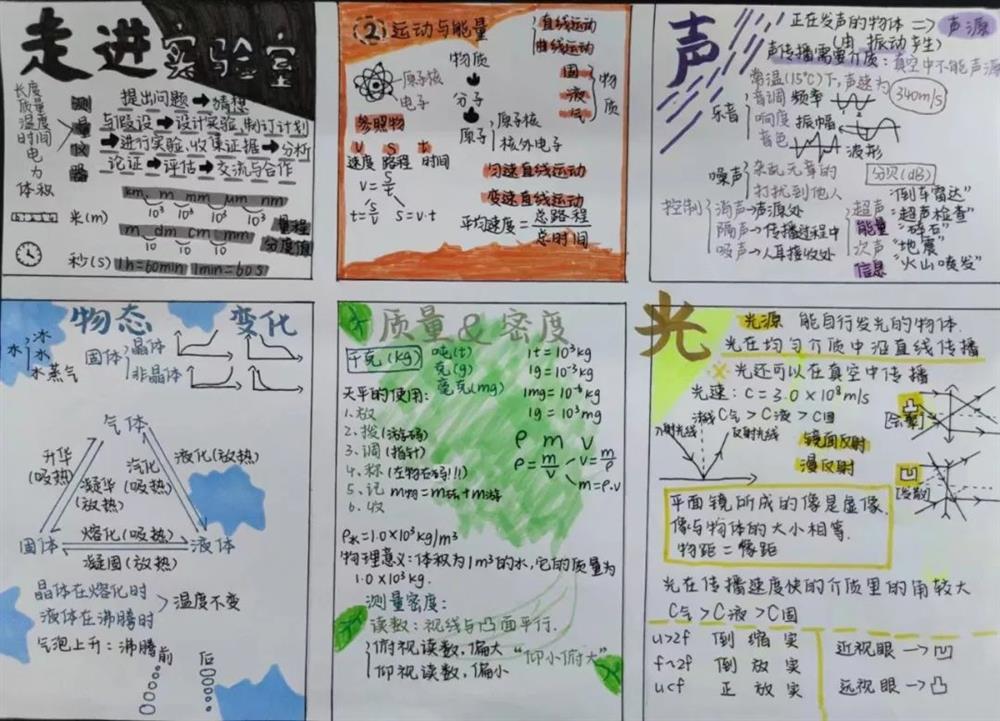 走进实验室
长度
质量
温度
时间
电
力
体积
测量仪器
提出问题→猜想
与假设→设计实验,制订计划
→进行实验,收集证据→分析
论证→评估→交流与合作
km m mm μm nm
10³ 10³ 10³ 10³
米(m)
m dm cm mm
10 10 10
量程
分度值
秒(s) 1h=60min 1min=60s
② 运动与能量
直线运动
曲线运动
原子核
电子
物质
分子
原子
原子核
核外电子
固
液
气
物质
参照物
v s t
速度 路程 时间
v=s/t
t=s/v s=v·t
匀速直线运动
变速直线运动
平均速度=总路程/总时间
声
正在发声的物体 => 声源
(由振动产生)
声传播需要介质:真空中不能声源
常温(15℃)下,声速为 340m/s
乐音
音调 频率
响度 振幅
音色 波形
噪声
杂乱无章的
打扰到他人
分贝(dB)
控制
消声→声源处
隔声→传播过程中
吸声→人耳接收处
超声
能量
次声
信息
"倒车雷达"
"超声检查"
"碎石"
"地震"
"火山喷发"
物态变化
水
冰
水
水蒸气
固体
晶体
非晶体
气体
升华
(吸热)
凝华
(放热)
汽化
(吸热)
液化(放热)
熔化(吸热)
固体 液体
凝固(放热)
晶体在熔化时
液体在沸腾时
温度不变
气泡上升:沸腾前 后
质量&密度
千克(kg)
吨(t)
克(g)
毫克(mg)
1t=10³kg
1g=10⁻³kg
1mg=10⁻⁶kg
1g=10³mg
天平的使用:
1.放
2.拨(游码)
3.调(指针)
4.称(左物右码!!!)
5.记 m物=m砝+m游
6.收
ρ m v
ρ=m/v
v=m/ρ
m=ρ·v
ρ水=1.0×10³kg/m³
物理意义:体积为1m³的水,它的质量为
1.0×10³kg.
测量密度:
读数:视线与凸面平行.
俯视读数,偏大
仰视读数,偏小
"仰小俯大"
光
光源 能自行发光的物体.
光在均匀介质中沿直线传播
光还可以在真空中传播
光速:c=3.0×10⁸m/s
C气>C液>C固
法线
入射光线
反射光线
镜面反射
漫反射
凸
[会聚]
凹
[发散]
平面镜所成的像是虚像.
像与物体的大小相等.
物距=像距
光在传播速度快的介质里的角较大
C气>C液>C固
u>2f 倒 缩 实
f~2f 倒 放 实
u<f 正 放 实
近视眼→凹
远视眼→凸